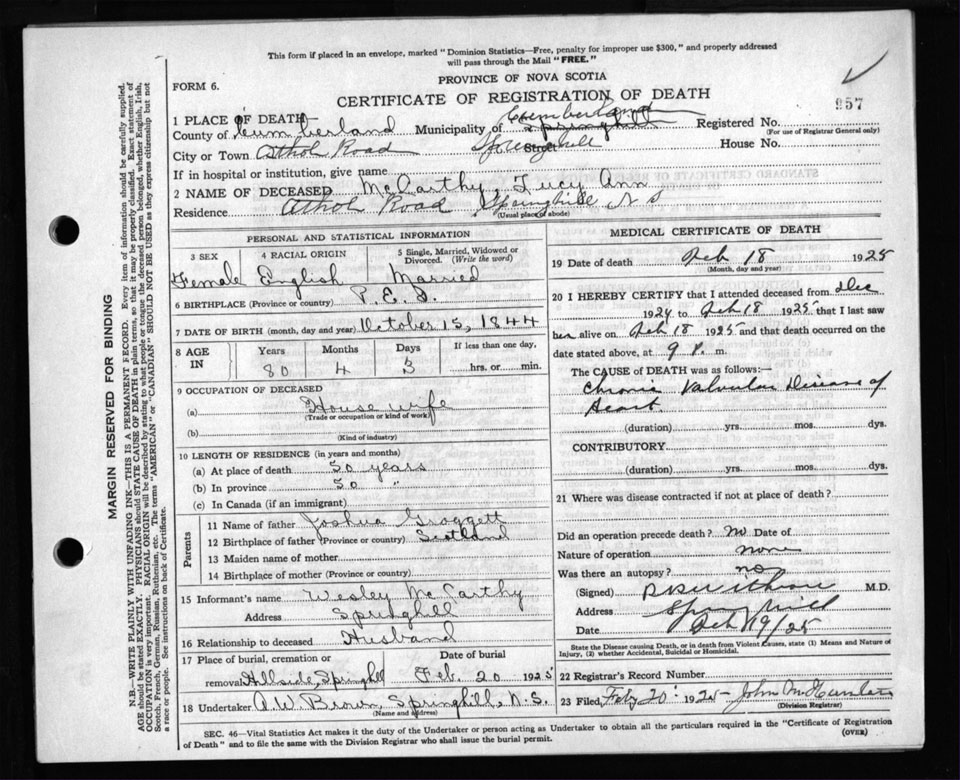 This form if placed in an envelope, marked "Dominion Statistics—Free, penalty for improper use $300," and properly addressed
will pass through the Mail "FREE."
PROVINCE OF NOVA SCOTIA
FORM 6.
CERTIFICATE OF REGISTRATION OF DEATH
957
1 PLACE OF DEATH—
County of Cumberland Municipality of Cumberland Springhill Registered No.
(For use of Registrar General only)
City or Town Athol Road Springhill Street House No.
If in hospital or institution, give name
2 NAME OF DECEASED McCarthy, Lucy Ann
Residence Athol Road Springhill N S
(Usual place of abode)
PERSONAL AND STATISTICAL INFORMATION
3 SEX 4 RACIAL ORIGIN 5 Single, Married, Widowed or Divorced. (Write the word)
Female English Married
6 BIRTHPLACE (Province or country) P.E.I.
7 DATE OF BIRTH (month, day and year) October 15, 1844
8 AGE IN Years Months Days If less than one day,
80 4 3 hrs. or min.
9 OCCUPATION OF DECEASED
(a) House wife
(Trade or occupation or kind of work)
(b)
(Kind of industry)
10 LENGTH OF RESIDENCE (in years and months)
(a) At place of death 50 years
(b) In province 50 "
(c) In Canada (if an immigrant)
Parents
11 Name of father Joshua Groggett
12 Birthplace of father (Province or country) Scotland
13 Maiden name of mother
14 Birthplace of mother (Province or country)
15 Informant's name Wesley McCarthy
Address Springhill
16 Relationship to deceased Husband
17 Place of burial, cremation or removal Date of burial
Hillside, Springhill Feb. 20 1925
18 Undertaker A.W. Brown, Springhill, N.S.
(Name and address)
MEDICAL CERTIFICATE OF DEATH
19 Date of death Feb 18 1925
(Month, day and year)
20 I HEREBY CERTIFY that I attended deceased from Dec
1924 to Feb 18 1925 that I last saw
her alive on Feb 18 1925 and that death occurred on
date stated above, at 9 P. m.
The CAUSE of DEATH was as follows:—
Chronic Valvular Disease of
Heart
(duration) yrs. mos. dys.
CONTRIBUTORY
(duration) yrs. mos. dys.
21 Where was disease contracted if not at place of death?
Did an operation precede death? no Date of
Nature of operation none
Was there an autopsy? no
(Signed) M.D.
Address Springhill
Date Feb 19/25
State the Disease causing Death, or in death from Violent Causes, state (1) Means and Nature of
Injury, (2) whether Accidental, Suicidal or Homicidal.
22 Registrar's Record Number
23 Filed, Feby 20 1925
(Division Registrar)
SEC. 46—Vital Statistics Act makes it the duty of the Undertaker or person acting as Undertaker to obtain all the particulars required in the "Certificate of Registration
of Death" and to file the same with the Division Registrar who shall issue the burial permit. (OVER)
MARGIN RESERVED FOR BINDING
N.B.—WRITE PLAINLY WITH UNFADING INK—THIS IS A PERMANENT RECORD. Every item of information should be carefully supplied.
AGE should be stated EXACTLY. PHYSICIANS should STATE CAUSE OF DEATH in plain terms, so that it may be properly classified. Exact statement of
OCCUPATION is very important. RACIAL ORIGIN will be described by stating to what people or tongue the deceased person belonged, whether English, Irish,
Scotch, French, German, Russian, Ruthenian, etc. The terms "AMERICAN" or "CANADIAN" SHOULD NOT BE USED as they express citizenship but not
a race or people. See instructions on back of Certificate.